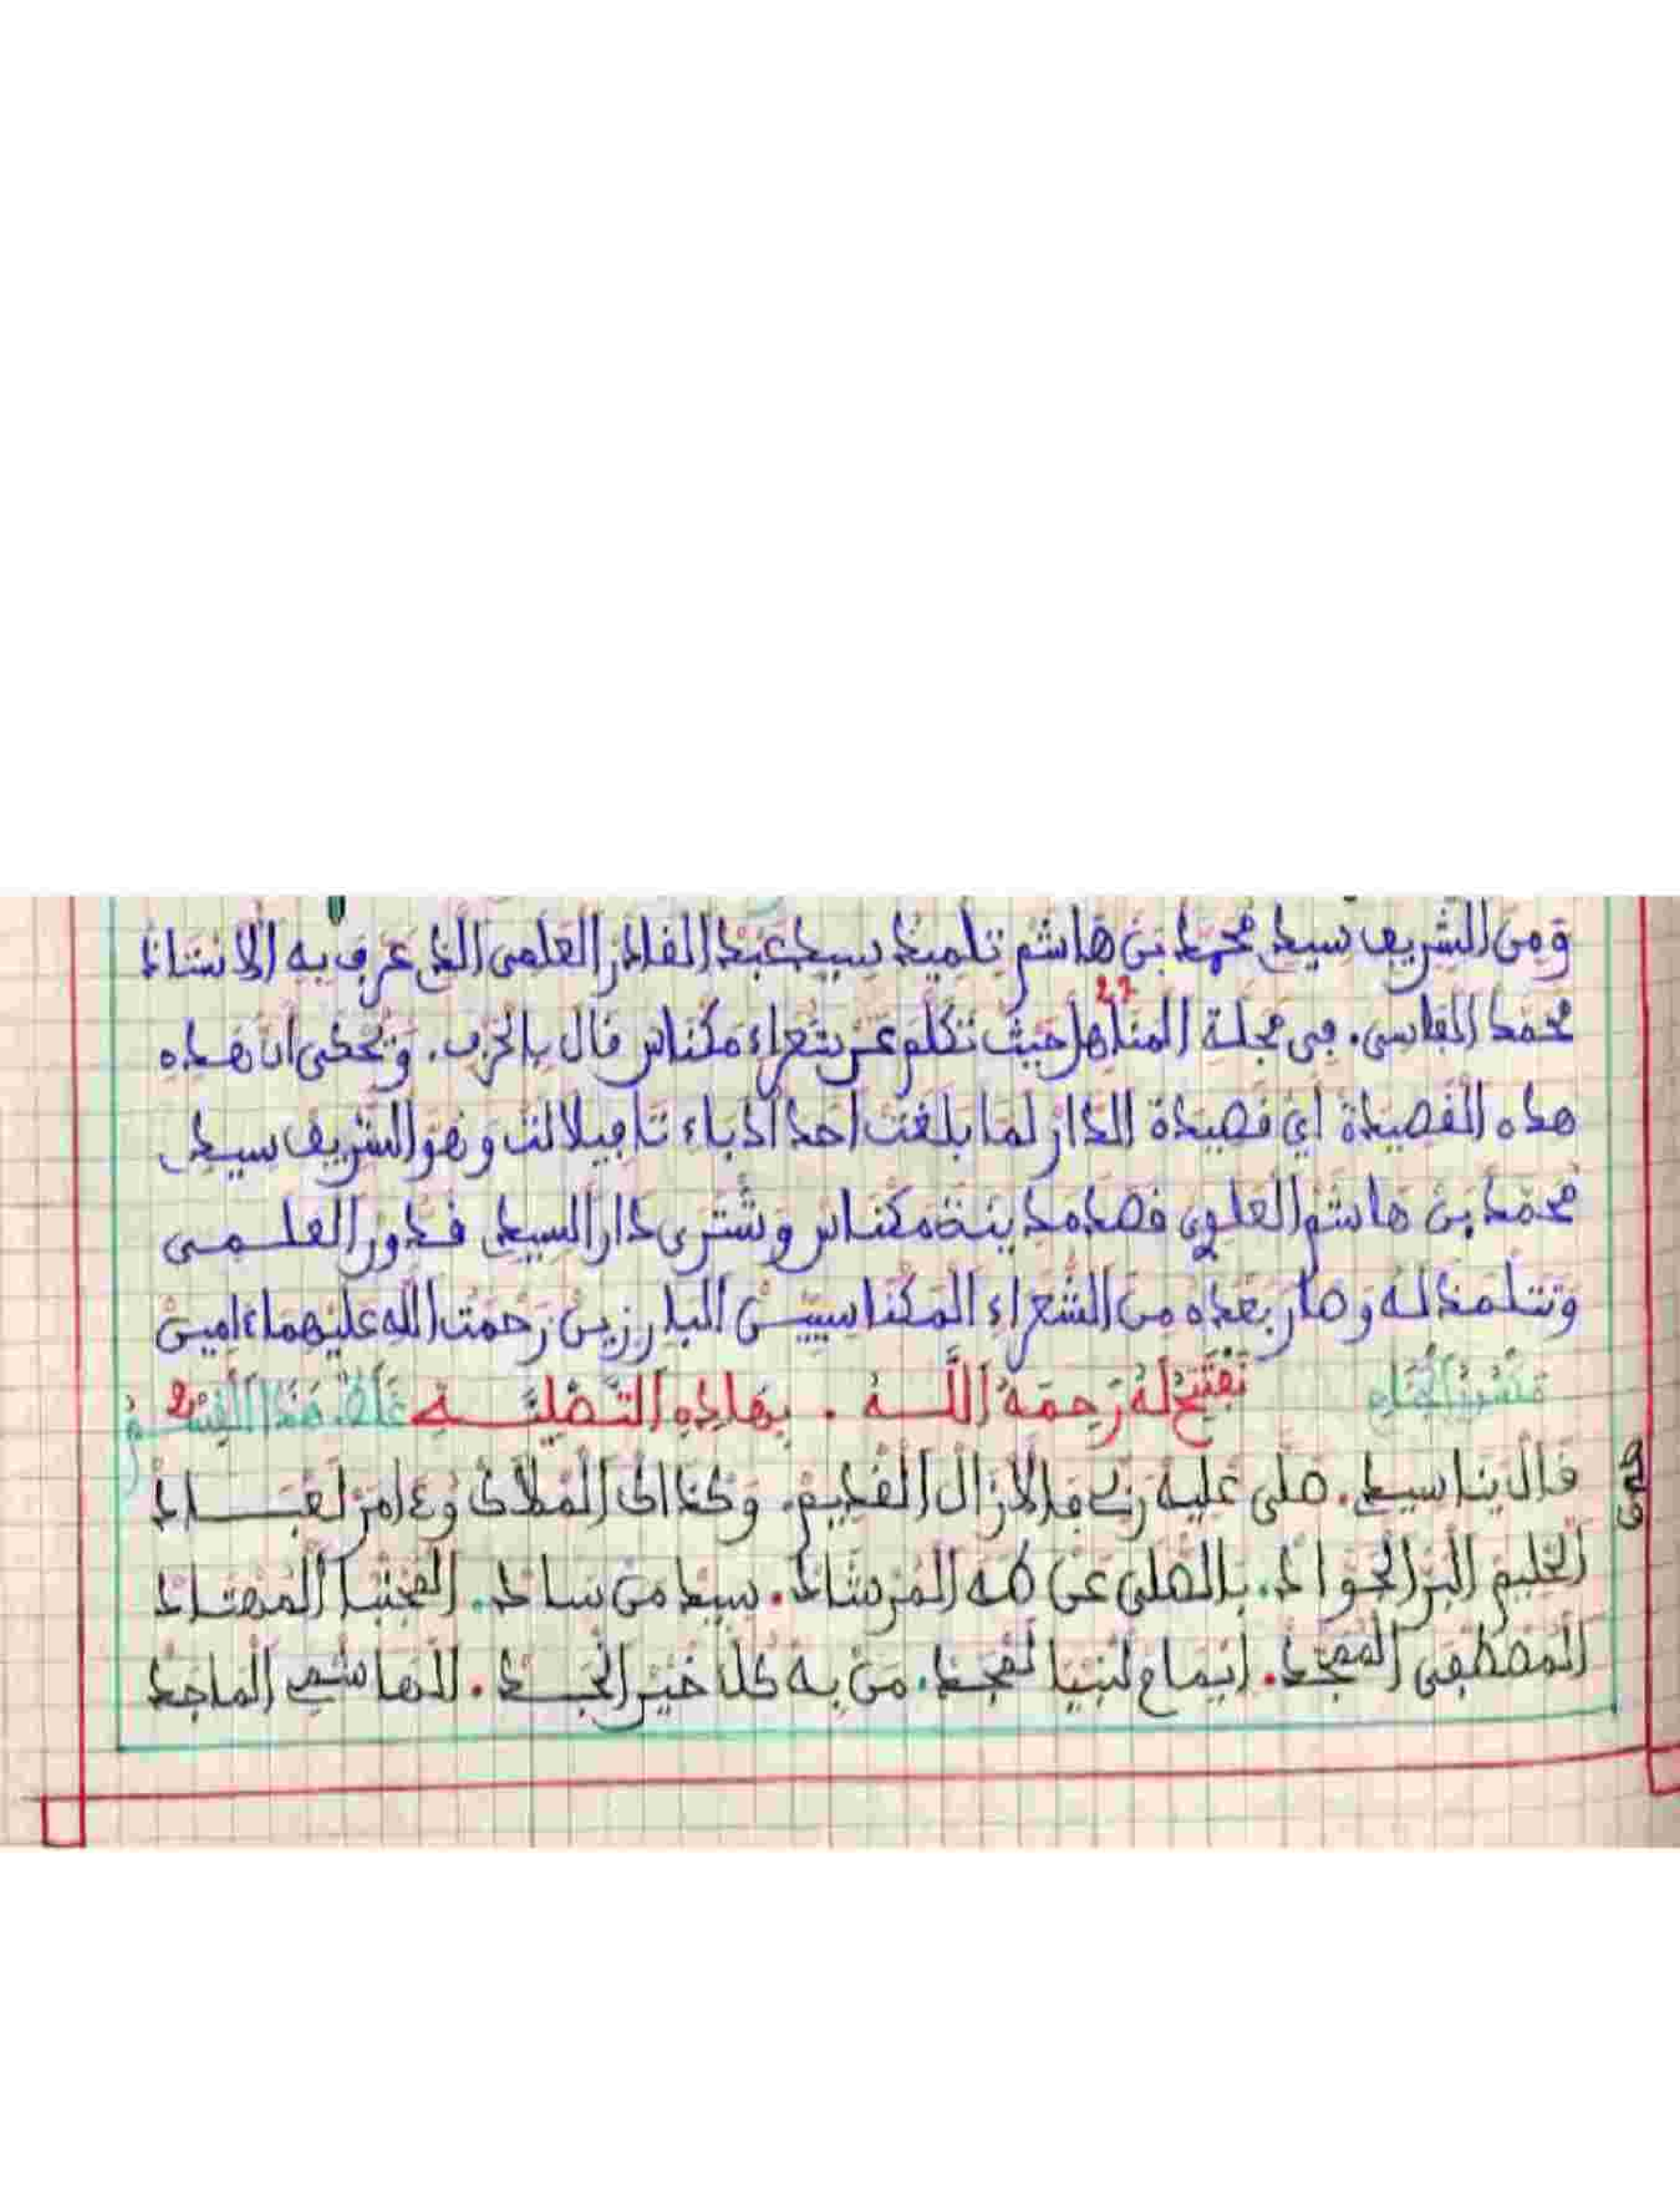 ومن الشريف سيدي محمد بن هاشم تلميذ سيدي عبد القادر العلمي الذي عرف به الاستاذ
محمد الفاسي. في مجلة المناهل حيث تكلم عن شعراء مكناس قال بالحرف. ويحكى ان هذه
هذه القصيدة أي قصيدة الدار لما بلغت احد ادباء تافيلالت وهو الشريف سيدي
محمد بن هاشم العلوي قصد مدينة مكناس وشترى دار السيد قدور العلمي
وتتلمذ له وصار بعده من الشعراء المكناسيين البارزين رحمت الله عليهما ءامين
نفتتح له رحمة الله . بهاذه التصلية على هذا القسم
قال يا سيدي. صلى عليه ربي فالازال القديم. وكذالك الملاك وءامر لعباد
الحليم البر الجواد. بالصلى عن طه المرشاد. سيد من ساد. المجتبا
المصطفى الممجد. لنبيا لمجد. من به كلنا خير الجد. الهاشمي الماجد